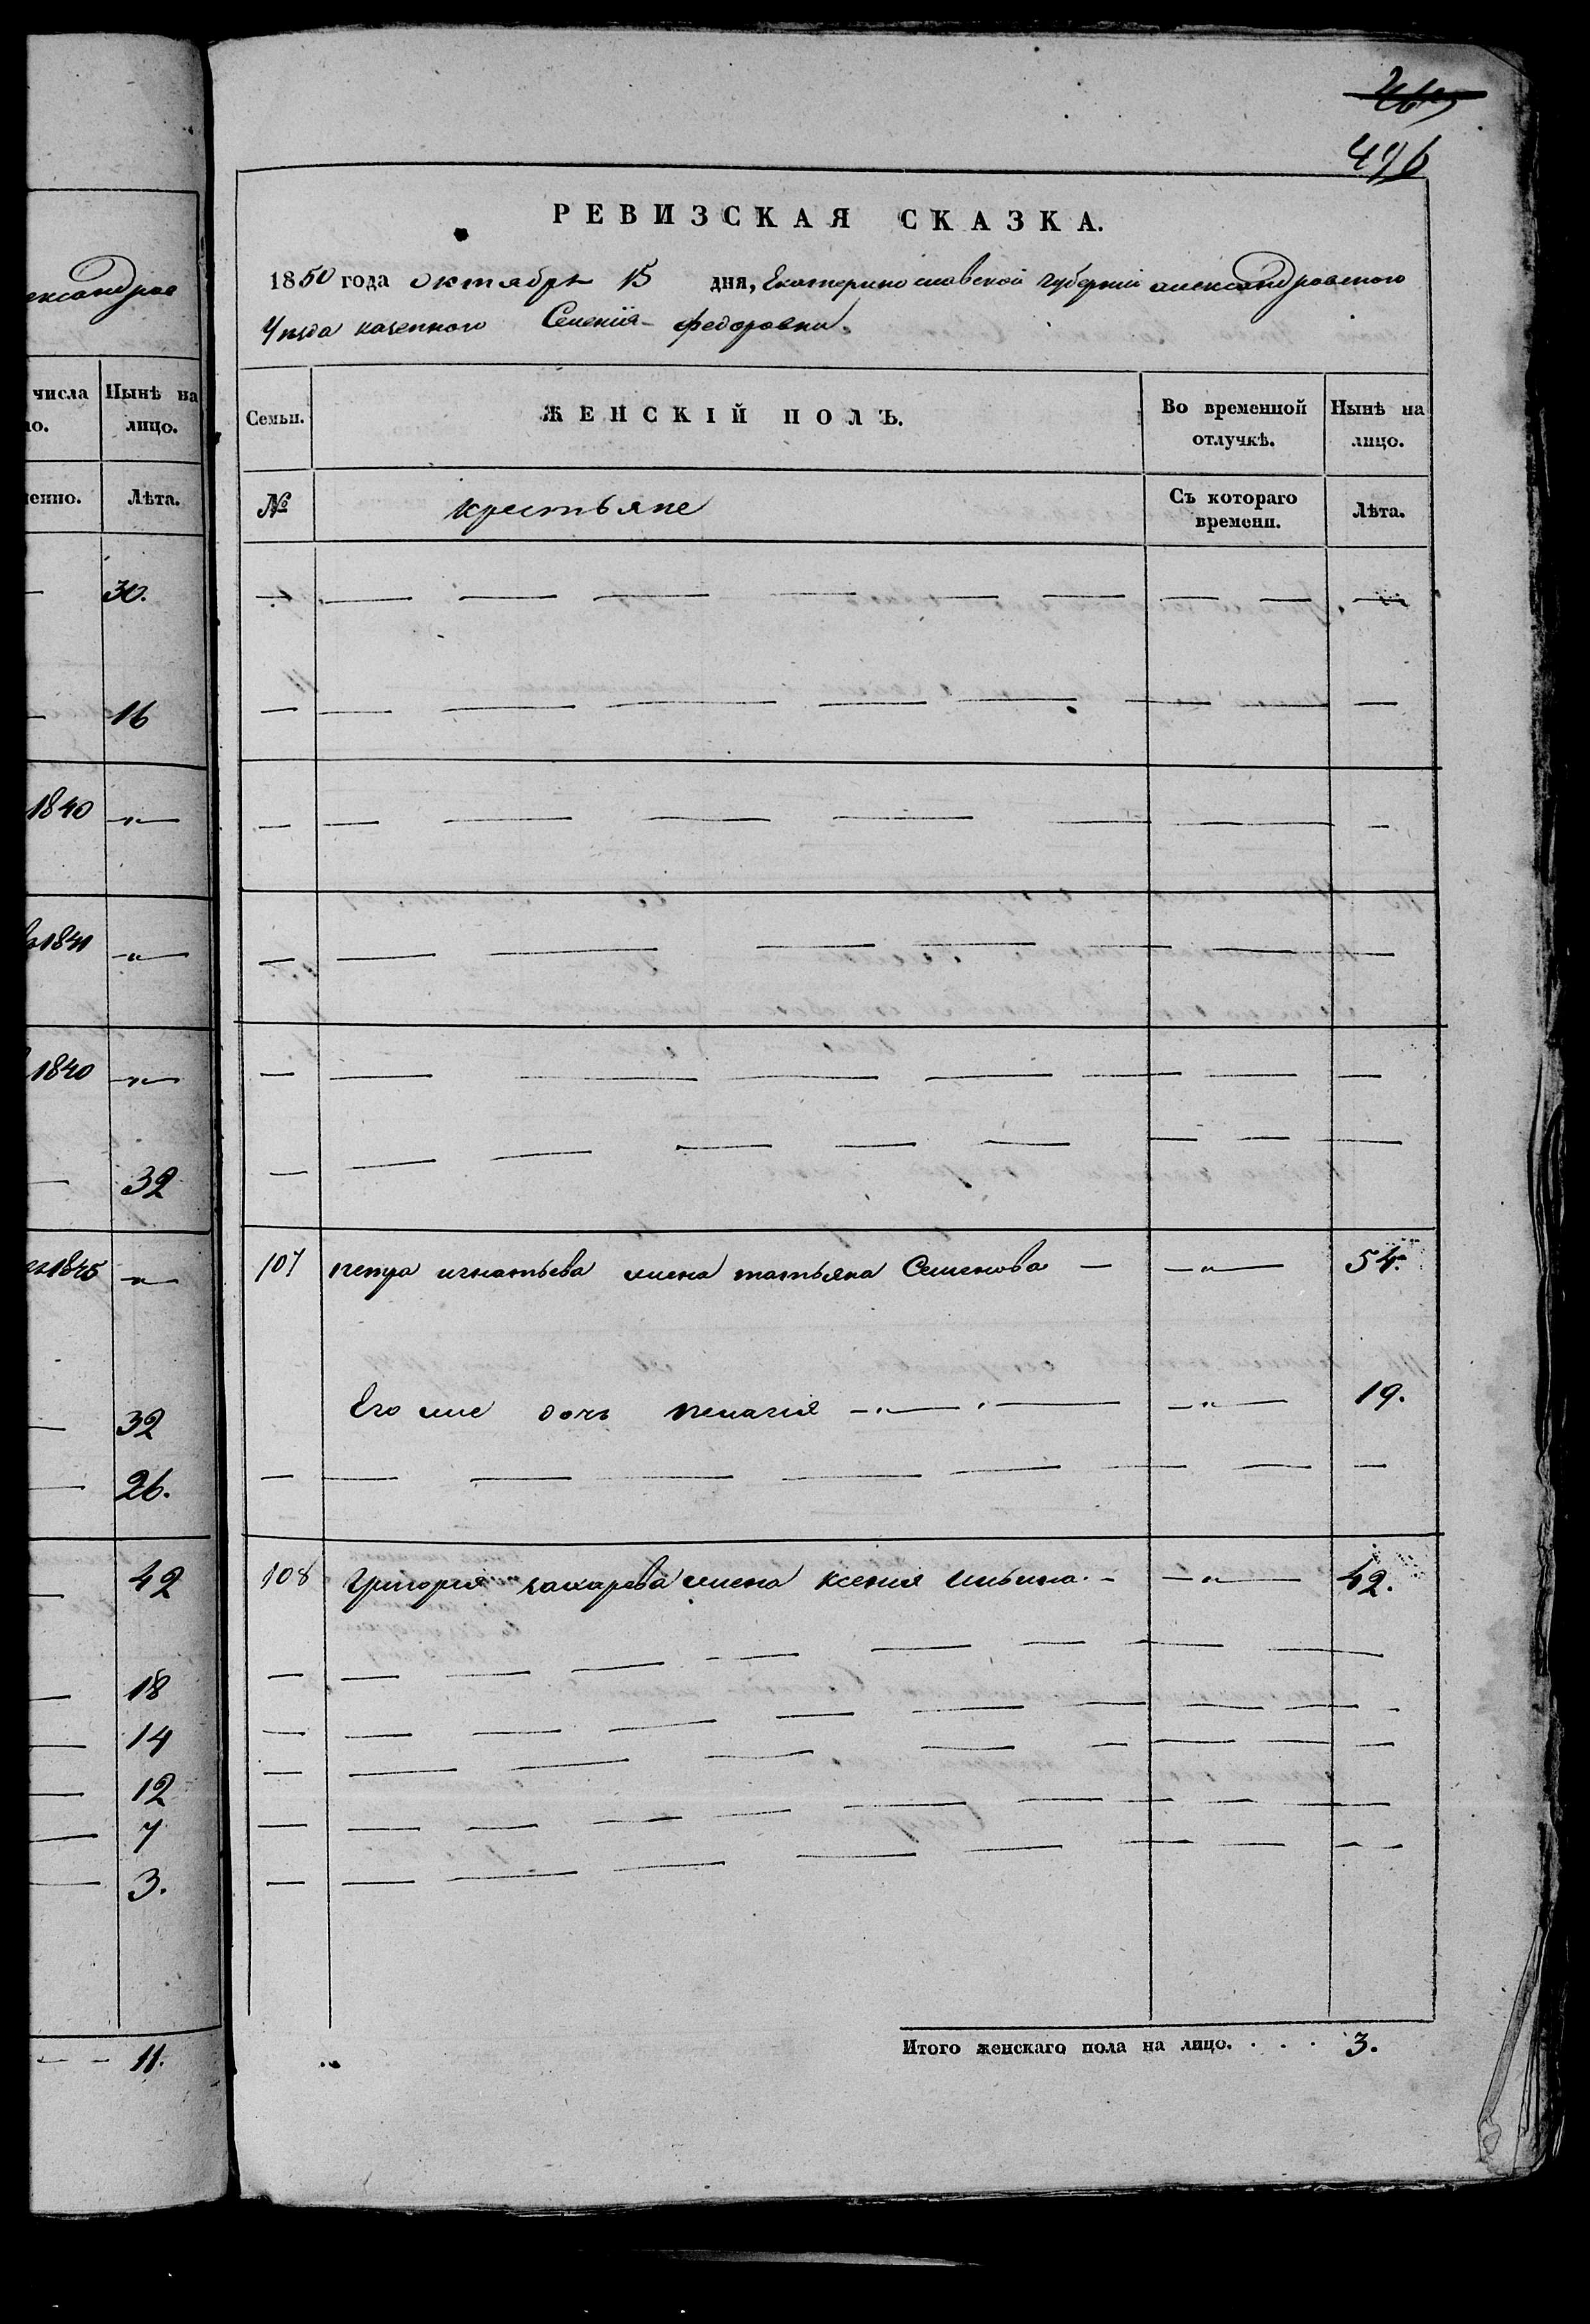 496
РЕВИЗСКАЯ СКАЗКА.
1850 года октября 15 дня, Екатеринославской губернии александровского
Уезда казенного Селения федоровки.
ександров
числа
Нынѣ на
лицо.
Семьи.
ЖЕНСКІЙ ПОЛЪ.
Во временной
отлучкѣ.
Нынѣ на
лицо.
енно.
Лѣта.
№
крестьяне
Съ котораго
времени.
Лѣта.
30.
16
1840
1841
1840
32
1845
32
26.
42
18
14
12
7
3.
11.
107 петра игнатьева жена татьяна Семенова 54.
Его же дочь пелагия 19.
108 григория захарева жена ксения ильина 42.
Итого женскаго пола на лицо. . . . 3.